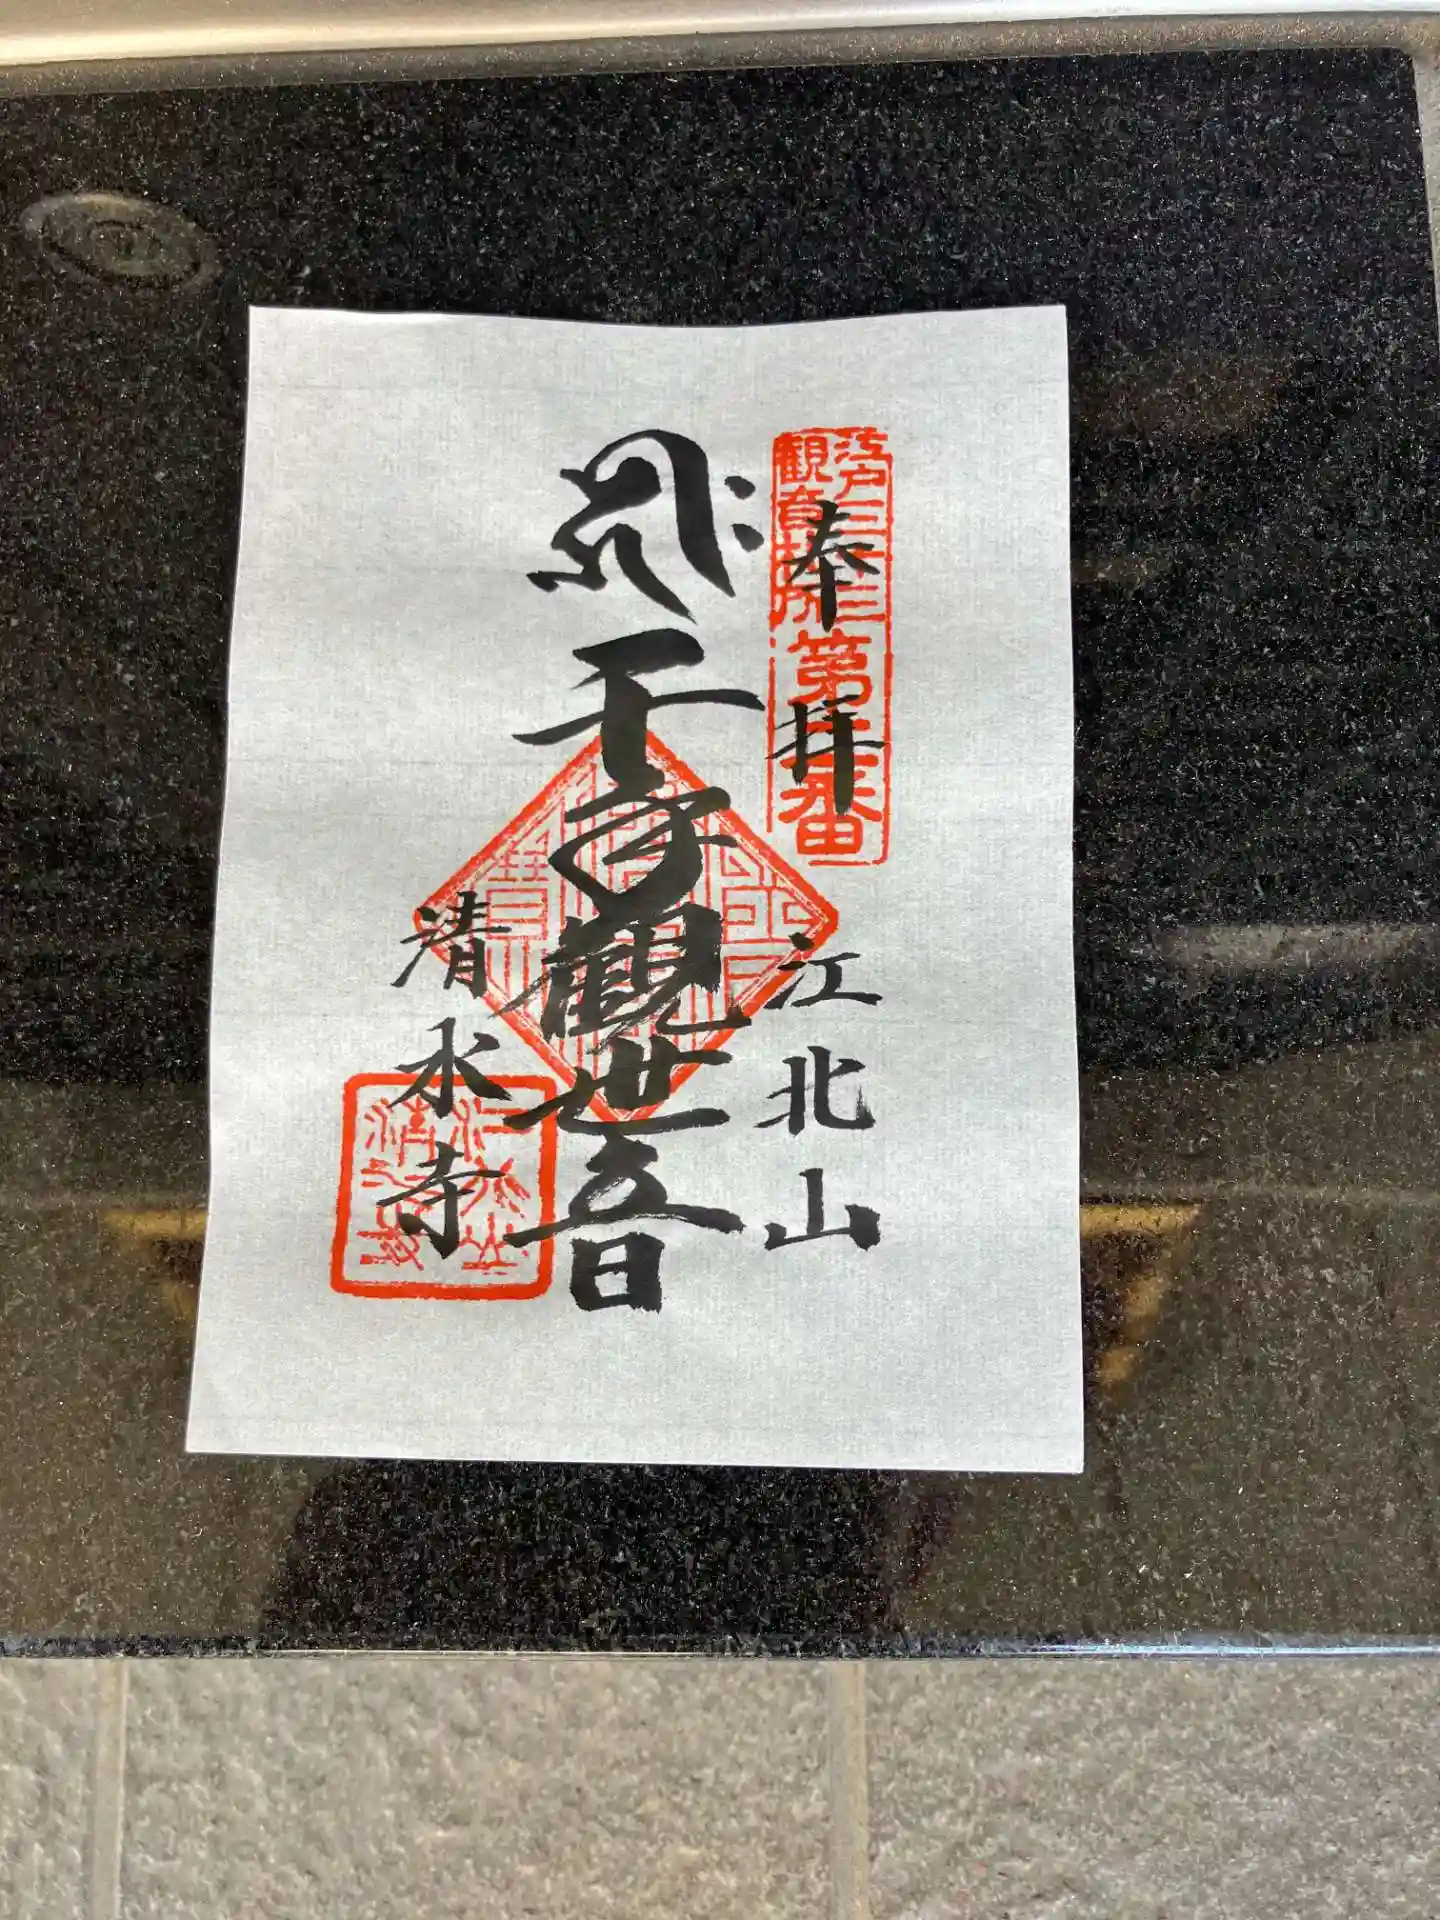 江戸三十三
観音札所
第二番
奉拝
江北山
𑖮𑖿𑖨𑖱𑖾
千手観世音
清水寺
江北山
清水寺